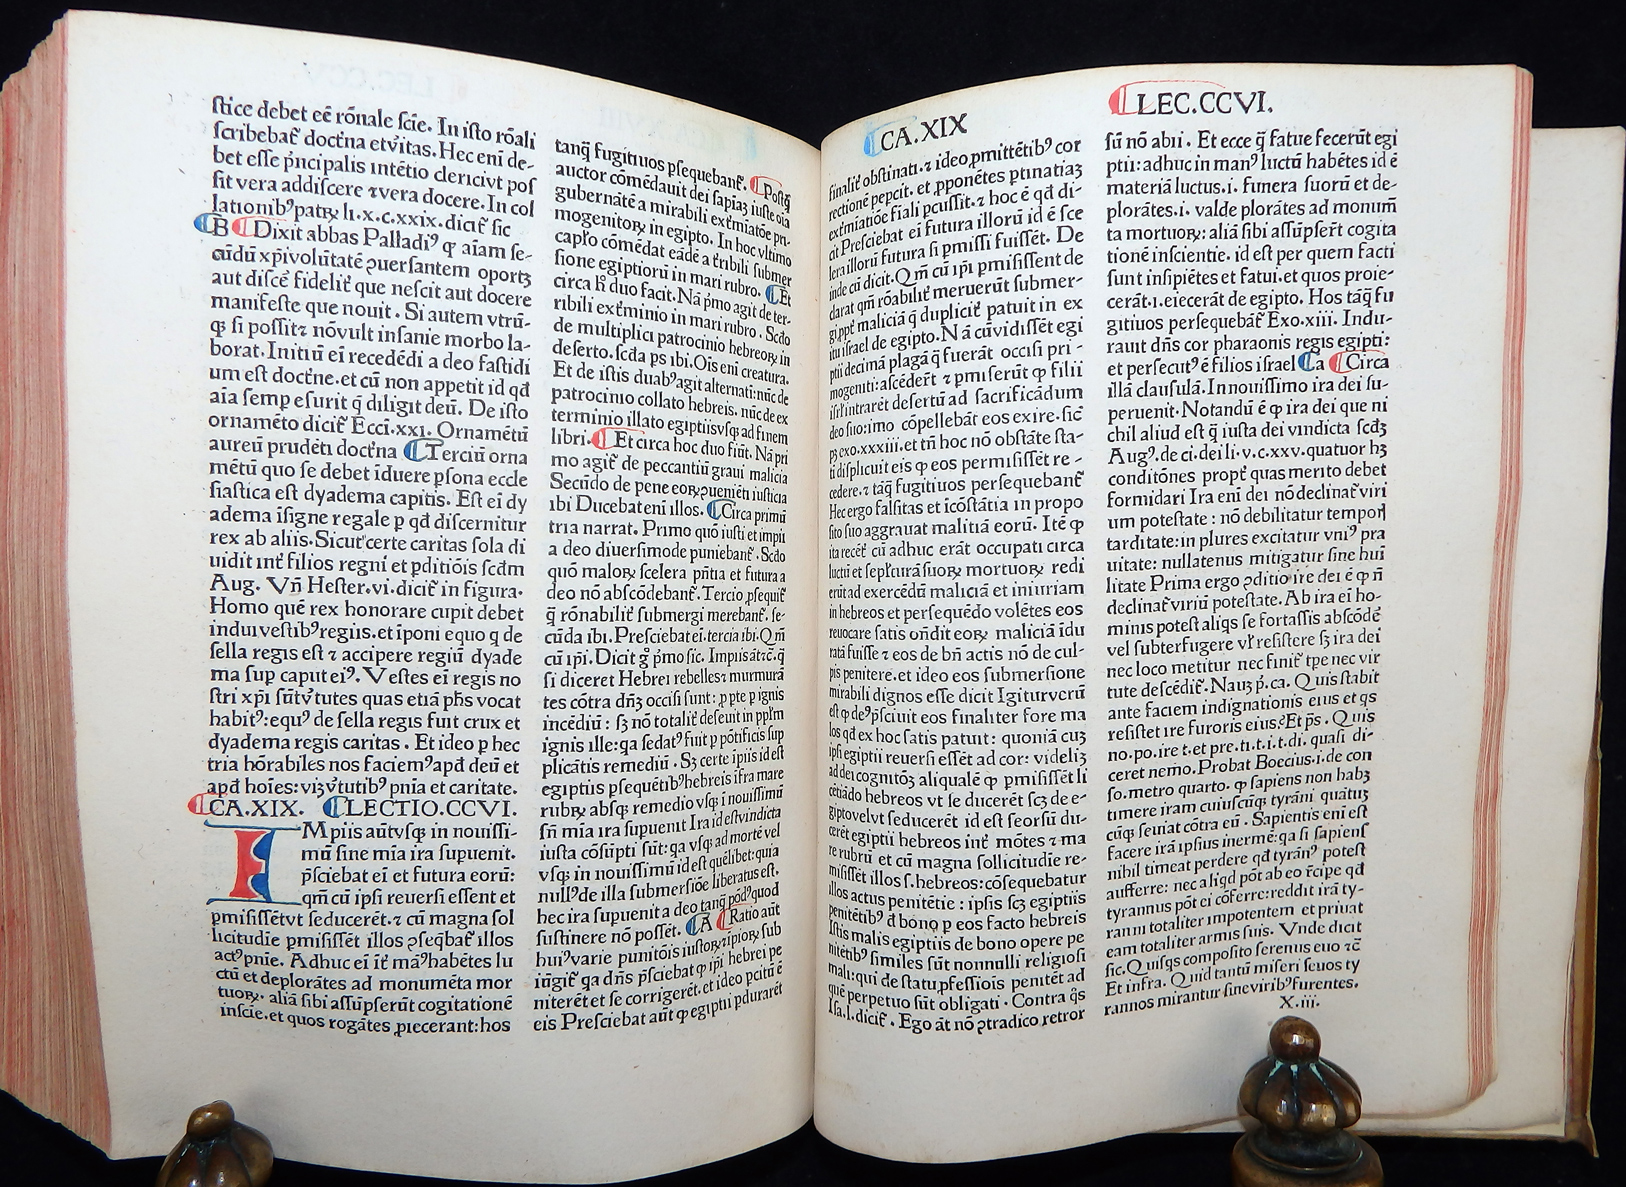 stice debet eē rōnale scīe. In isto rōali
scribebat᷑ doct̾na etv̾itas. Hec enī de-
bet esse p̄ncipalis intētio clericivt pos
sit vera addiscere ⁊vera docere. In col
lationibꝰpatrꝝ li.x.c.xxix.dicit᷑ sic
B Dixit abbas Palladiꝰ ꝙ aīam se-
cūdū xp̄ivolūtatē ꝯuersantem oportꝫ
aut discē fidelit᷑ que nescit aut docere
manifeste que nouit. Si autem vtrū-
ꝙ si possit⁊ nōvult insanie morbo la-
borat. Initiū eī recedēdi a deo fastidi
um est doct̾ne.et cū non appetit id qd̄
aīa semp esurit q̄ diligit deū. De isto
ornamēto dicit᷑ Ecci.xxi. Ornamētū
aureū prudēti doct̾na Terciū orna
mētū quo se debet īduere ꝑsona eccle
siastica est dyadema capitis. Est eī dy
adema īsigne regale ꝑ qd̄ discernitur
rex ab aliis. Sicut certe caritas sola di
uidit int᷑ filios regni et ꝑditiōis scd̄m
Aug. Vn̄ Hester.vi.dicit᷑ in figura.
Homo quē rex honorare cupit debet
indui vestibꝰregiis.et īponi equo q de
sella regis est ⁊ accipere regiū dyade
ma sup caput eiꝰ. Vestes eī regis no
stri xp̄i sūtv̾tutes quas etiā ph̄s vocat
habitꝰ:equꝰ de sella regis fuit crux et
dyadema regis caritas. Et ideo ꝑ hec
tria hōrabiles nos faciemꝰapd̄ deū et
apd̄ hoīes: vizv̾tutibꝰ pnia et caritate.
CA.XIX. LECTIO.CCVI.
IMpiis aūtvsqꝫ in nouissi-
mū sine mīa ira supuenit.
p̄sciebat eī et futura eorū:
qm̄ cū ipsi reuersi essent et
pmisissētvt seducerēt.⁊ cū magna sol
licitudīe pmisissēt illos ꝯseq̄bat᷑ illos
actꝰ pnīe. Adhuc eī īt᷑ māꝰhabētes lu
ctū et deplorātes ad monumēta mor
tuorꝝ. aliā sibi assūpserūt cogitationē
inscīe.et quos rogātes ꝓiecerant:hos
tanq̄ fugitiuos psequebant᷑. Postq̄
auctor cōmēdauit dei sapiaꝫ iuste oīa
gubernātē a mirabili ext̾miatōe pri-
mogenitorꝝ in egipto. In hoc vltimo
cap̄lo cōmēdat eādē a t̾ribili submer
sione egiptiorū in mari rubro. Et
circa h̄ duo facit. Nā p̄mo agit de ter-
ribili ext̾minio in mari rubro. Scdo
de multiplici patrocinio hebreorꝝ in
deserto. scda ps ibi. Ois enī creatura.
Et de istis duabꝰagit alternati:nūc de
patrocinio collato hebreis. nūc de ex
terminio illato egiptiisvsqꝫ ad finem
libri. Et circa hoc duo fiūt. Nā pri
mo agit᷑ de peccantiū graui malicia
Secūdo de pene eorꝝ ꝓueniēti iusticia
ibi Ducebat enī illos. Circa primū
tria narrat. Primo quō iusti et impii
a deo diuersimode puniebant᷑. Scdo
quō malorꝝ scelera pn̄tia et futura a
deo nō abscōdebant᷑. Tercio ꝓsequit᷑
q̄ rōnabilit᷑ submergi merebant᷑. se-
cūda ibi. Presciebat eī. tercia ibi. Qm̄
cū ip̄i. Dicit g̊ p̄mo sic. Impiis āt⁊c̄.q̄
si diceret Hebrei rebelles⁊ murmurā
tes cōtra dn̄ꝫ occisi sunt: ꝓpte p ignis
incēdiū: sꝫ nō totalit᷑ deseuit in pp̄lm
ignis ille: qa sedatꝰ fuit ꝑ pōtificis sup
plicātis remediū. Sꝫ certe ipiis id est
egiptiis psequētibꝰhebreis īfra mare
rubrꝝ absqꝫ remedio vsqꝫ ī nouissimū
sn̄ mīa ira supuenit Ira id estvindicta
iusta cōsūpti sūt: qa vsqꝫ ad mortē vel
vsqꝫ in nouissimū id est quēlibet: quia
nullꝰde illa submersiōe liberatus est.
hec ira supuenit a deo tanq̄ pōdꝰquod
sustinere nō posset. A Ratio aūt
huiꝰvarie punitōis iustorꝝ ⁊ipiorꝝ sub
iūgit᷑ qa dn̄s p̄sciebat ꝙ ip̄i hebrei pe
niterēt et se corrigerēt. et ideo pcitū ē
eis Presciebat aūt ꝙ egiptii pdurarēt
CA.XIX
finalit᷑ obstinati.⁊ ideo ꝓmittētibꝰ cor
rectionē pepcit. et ꝓponētes ptinatiaꝫ
extmiatiōe fiali pcussit.⁊ hoc ē qd̄ di-
cit Presciebat eī futura illorū id ē sce
lera illorū futura si pmissi fuissēt. De
inde cū dicit. Qm̄ cū ip̄i pmisissent de
clarat qm̄ rōabilit᷑ meruerūt submer-
gi.ppt᷑ maliciā q̄ duplicit᷑ patuit in ex
itu israel de egipto. Nā cūvidissēt egi
ptii decimā plagā q̄ fuerāt occisi pri-
mogeniti: ascēdert̄ ⁊ pmiserūt ꝙ filii
isrl̄ intrarēt desertū ad sacrificādum
deo suo: imo cōpellebāt eos exire. sic̄
pꝫ exo.xxxiii. et tn̄ hoc nō obstāte sta-
ti displicuit eis ꝙ eos permisissēt re-
cedere.⁊ tāq̄ fugitiuos persequebant᷑
Hec ergo falsitas et icōstātia in propo
sito suo aggrauat malitiā eorū. Itē ꝙ
ita recēt᷑ cū adhuc erāt occupati circa
luctū et sepl̄turā suorꝝ mortuorꝝ redi
erūt ad exercēdū maliciā et iniuriam
in hebreos et persequēdo volētes eos
reuocare satis on̄dit eorꝝ maliciā īdu
ratā fuisse ⁊ eos de bn̄ actis nō de cul-
pis penitere. et ideo eos submersione
mirabili dignos esse dicit Igiturverū
est ꝙ deꝰp̄sciuit eos finaliter fore ma
los qd̄ ex hoc satis patuit: quoniā cuꝫ
ipsi egiptii reuersi essēt ad cor: videliꝫ
ad dei cognitōꝫ aliqualē ꝙ pmisissēt li
cētiādo hebreos vt se ducerēt scꝫ de e-
giptovelvt seducerēt id est seorsū du-
cerēt egiptii hebreos int᷑ mōtes ⁊ ma
re rubrū et cū magna sollicitudīe re-
misissēt illos s.hebreos: cōsequebatur
illos actus penitētie: ipsis scꝫ egiptiis
penitētibꝰ d̄ bono ꝑ eos facto hebreis
Istis malis egiptiis de bono opere pe
nitētibꝰ similes sūt nonnulli religiosi
mali: qui de statu ꝓfessiōis penitēt ad
quē perpetuo sūt obligati. Contra q̄s
Isa.l.dicit᷑. Ego āt nō ꝯtradico retror
LEC.CCVI.
sū nō abii. Et ecce q̄ fatue fecerūt egi
ptii: adhuc in manꝰ luctū habētes id ē
materiā luctus.i. funera suorū et de-
plorātes.i. valde plorātes ad monum̄
ta mortuorꝝ: aliā sibi assūpsert̄ cogita
tionē inscientie. id est per quem facti
sunt insipiētes et fatui. et quos proie-
cerāt.i.eiecerāt de egipto. Hos tāq̄ fu
gitiuos persequebāt᷑ Exo.xiii. Indu-
rauit dn̄s cor pharaonis regis egipti:
et persecutꝰ ē filios israel Ca Circa
illā clausulā. In nouissimo ira dei su-
peruenit. Notandū ē ꝙ ira dei que ni
chil aliud est q̄ iusta dei vindicta scd̄ꝫ
Augꝰ. de ci. dei li.v.c.xxv. quatuor hꝫ
conditōnes propt᷑ quas merito debet
formidari Ira enī dei nō declinat᷑ viri
um potestate: nō debilitatur tempor̄
tarditate: in plures excitatur vniꝰ pra
uitate: nullatenus mitigatur sine hui
litate Prima ergo ꝯditio ire dei ē ꝙ n̄
declinat᷑ viriū potestate. Ab ira eī ho-
minis potest aliqs se fortassis abscōdē
vel subterfugere vl̄ resistere sꝫ ira dei
nec loco metitur nec finit᷑ tpe nec vir
tute descēdit᷑. Nauꝫ p̄.ca. Quis stabit
ante faciem indignationis eius et qs
resistet ire furoris eius? Et ps̄. Quis
no.po.ire t.et pre.ti.t.i.t.di. quasi di-
ceret nemo. Probat Boecius.i.de con
so.metro quarto. ꝙ sapiens non habꝫ
timere iram cuiuscūqꝫ tyrāni quātūꝫ
cūqꝫ seuiat cōtra eū. Sapientis enī est
facere irā ipsius inermē: qa si sapiens
nihil timeat perdere qd̄ tyrānꝰ potest
aufferre: nec aliqd pōt ab eo rēcipe qd̄
tyrannus pōt ei cōferre: reddit irā ty-
ranni totaliter impotentem et priuat
eam totaliter armis suis. Vnde dicit
sic. Quisqs composito serenus euo ⁊c̄
Et infra. Quid tantū miseri seuos ty
rannos mirantur sine viribꝰfurentes.
X.iii.